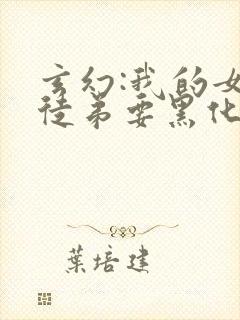 玄幻:我的女
徒弟要黑化
葉培建